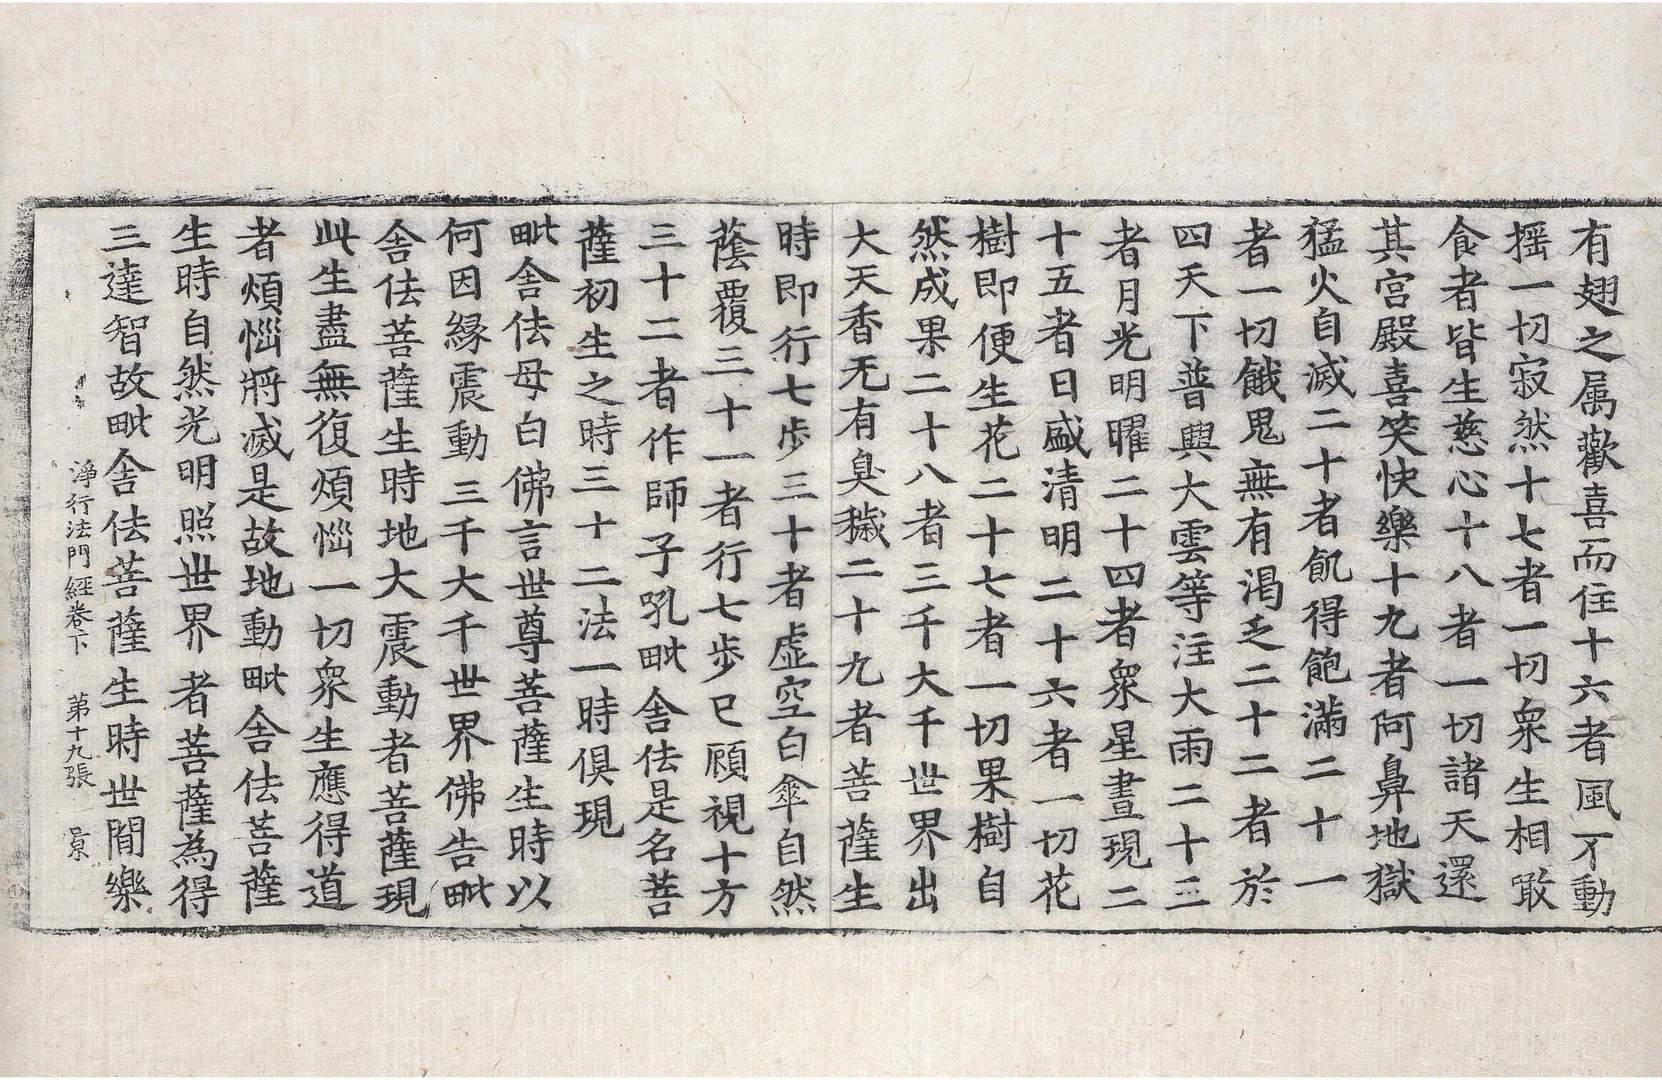 有翅之属歡喜而住十六者風不動
摇一切寂然十七者一切衆生相噉
食者皆生慈心十八者一切諸天還
其宫殿喜笑快樂十九者阿鼻地獄
猛火自滅二十者飢得飽滿二十一
者一切餓鬼無有渴乏二十二者於
四天下普興大雲等注大雨二十三
者月光明曜二十四者衆星晝現二
十五者日盛清明二十六者一切花
樹即便生花二十七者一切果樹自
然成果二十八者三千大千世界出
大天香无有臭穢二十九者菩薩生
時即行七步三十者虚空白傘自然
蔭覆三十一者行七步已顧視十方
三十二者作師子吼毗舍佉是名菩
薩初生之時三十二法一時俱現
毗舍佉母白佛言世尊菩薩生時以
何因緣震動三千大千世界佛告毗
舍佉菩薩生時地大震動者菩薩現
此生盡無復煩惱一切衆生應得道
者煩惱將滅是故地動毗舍佉菩薩
生時自然光明照世界者菩薩為得
三達智故毗舍佉菩薩生時世間樂
淨行法門經卷下 第十九張 景